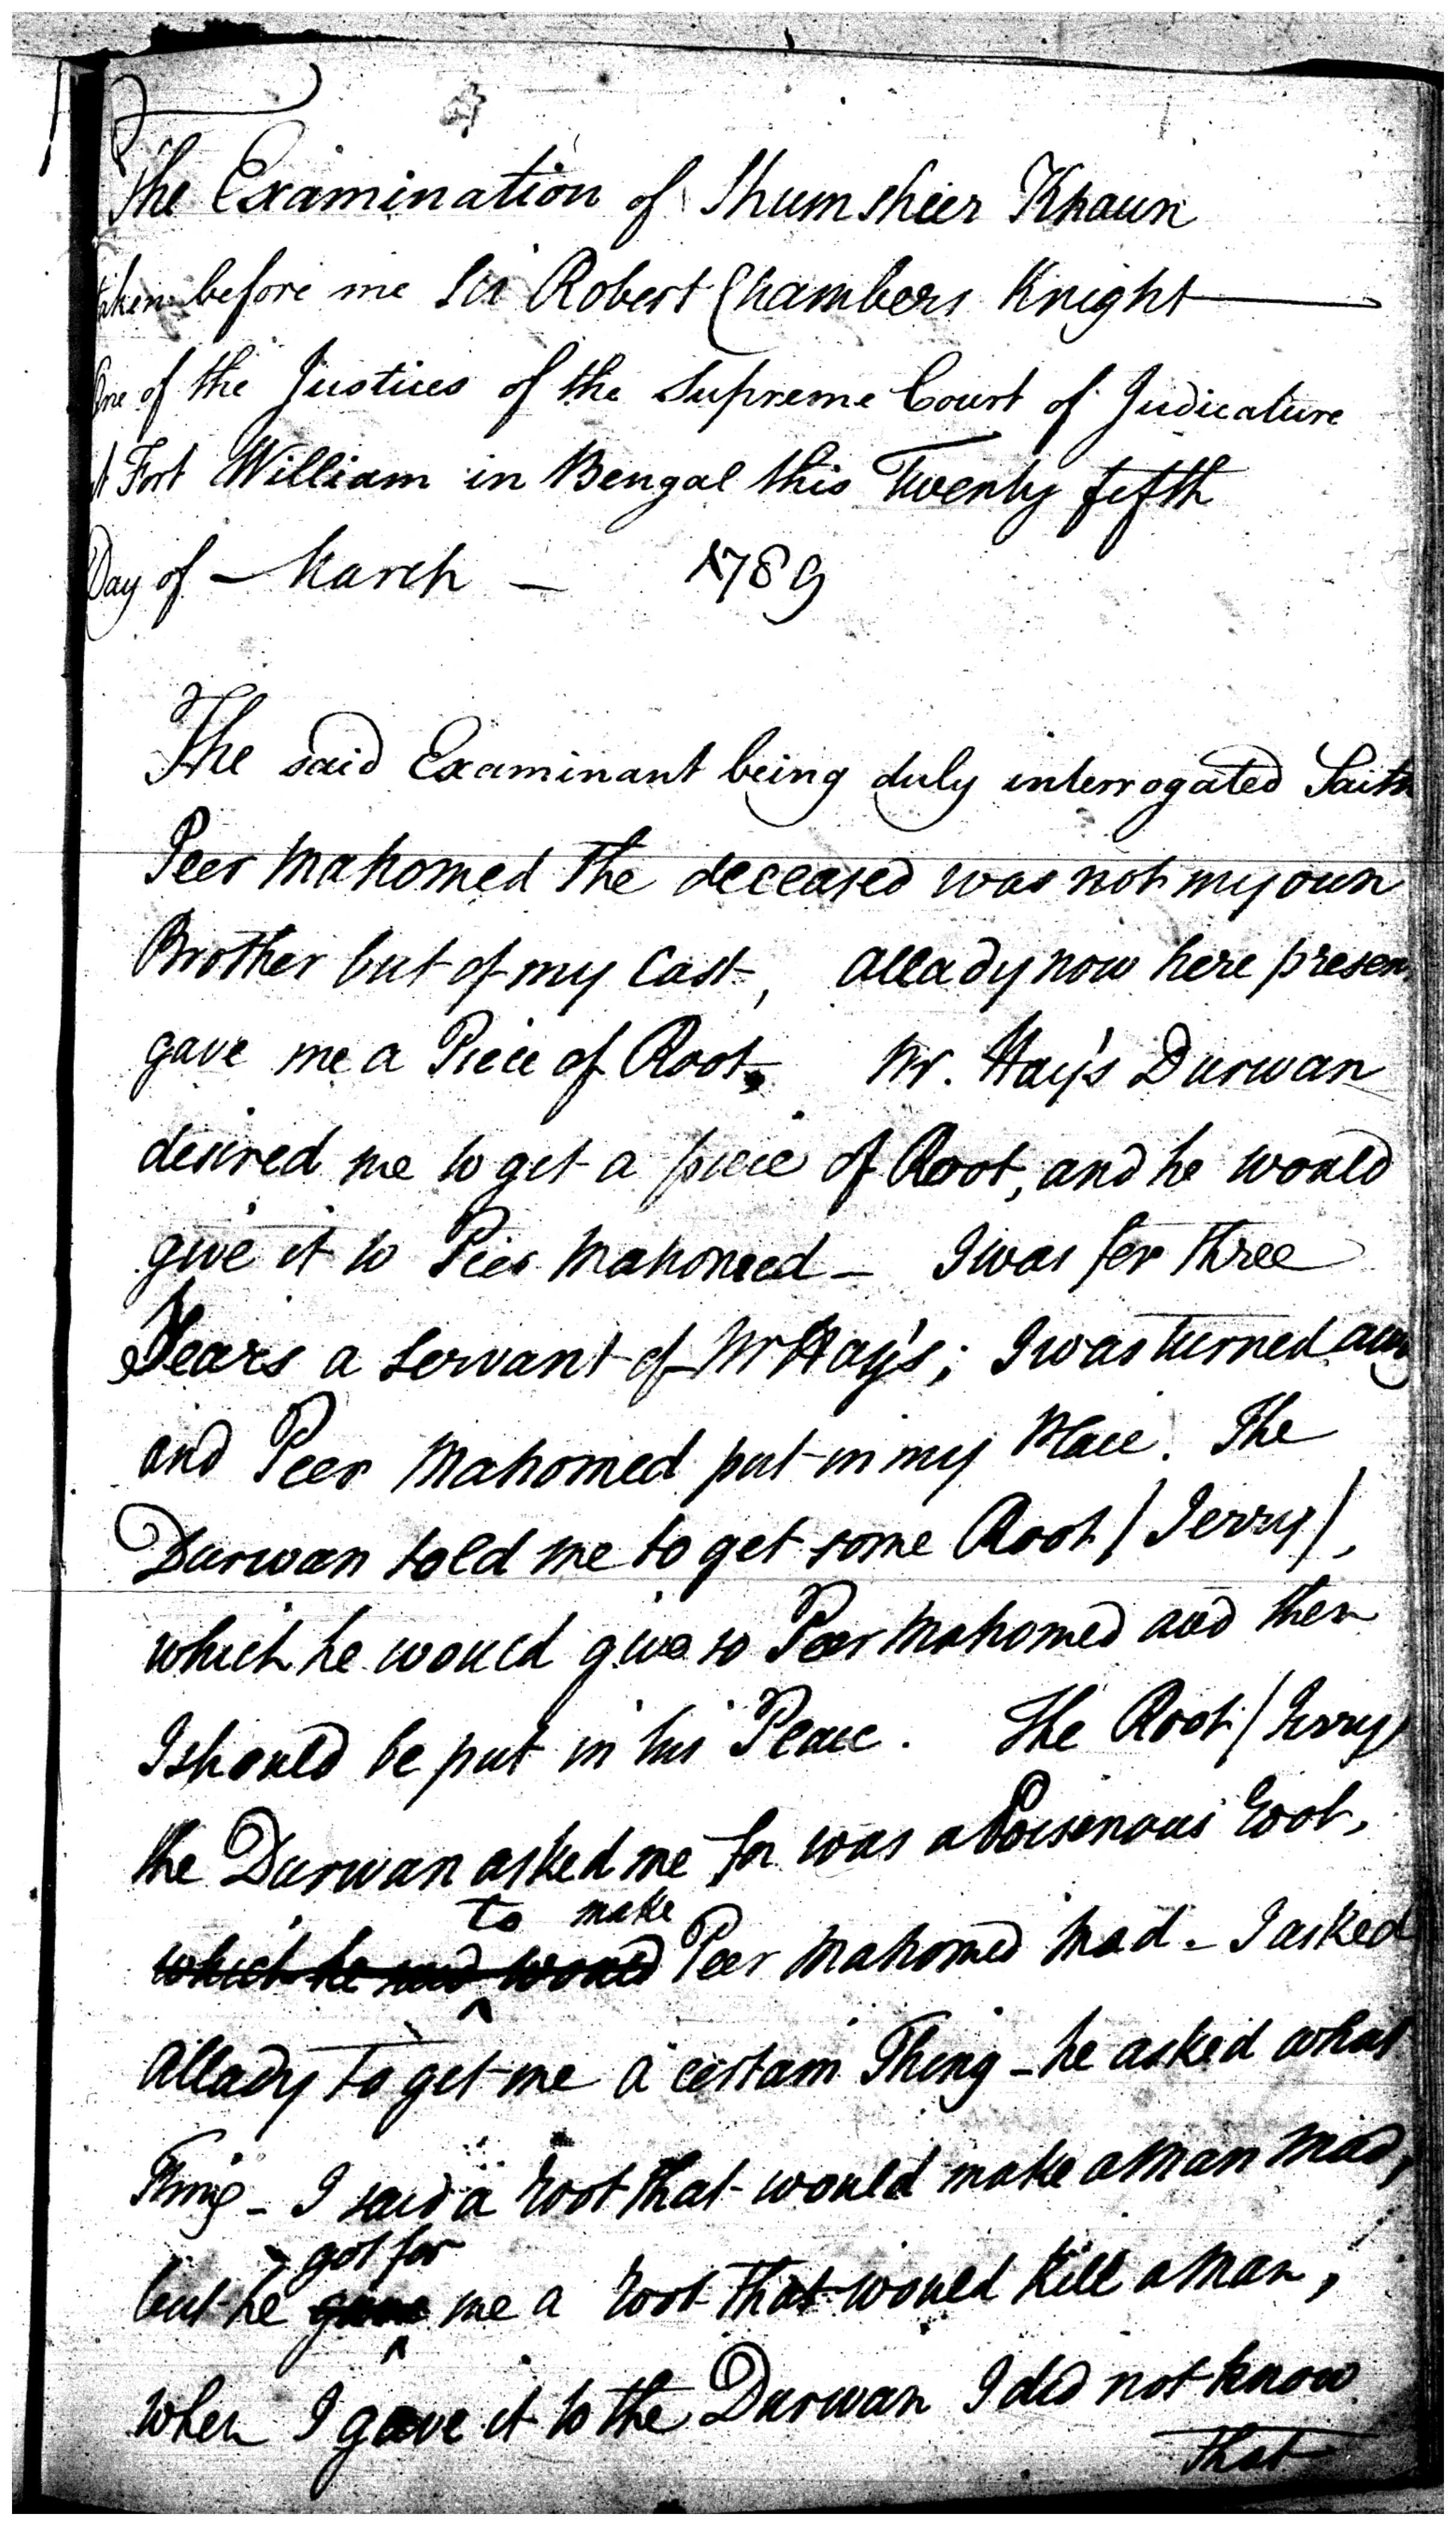 The Examination of Shumsheer Khaun
taken before me Sir Robert Chambers Knight
One of the Justices of the Supreme Court of Judicature
at Fort William in Bengal this Twenty fifth
Day of - March - 1789
The said Examinant being duly interrogated Saith
Peer Mahomed the deceased was not my own
Brother but of my Cast, Allady now here presen
gave me a Piece of Root, Mr. Hay's Durwan
desired me to get a piece of Root, and he would
give it to Peer Mahomed - I was for three
Years a Servant of Mr Hay's; I was turned away
and Peer Mahomed put in my Place. The
Durwan told me to get some Root / Jerry /,
which he would give to Peer Mahomed and then
I should be put in his Place. The Root / Jerry
the Durwan asked me for was a Poisenous root,
to make
which he said would Peer Mahomed mad - I asked
Allady to get me a certain Thing - he asked what
Thing - I said a root that would make a Man Mad,
got for
but he gave me a root that would kill a Man,
when I gave it to the Durwan I did not know
that